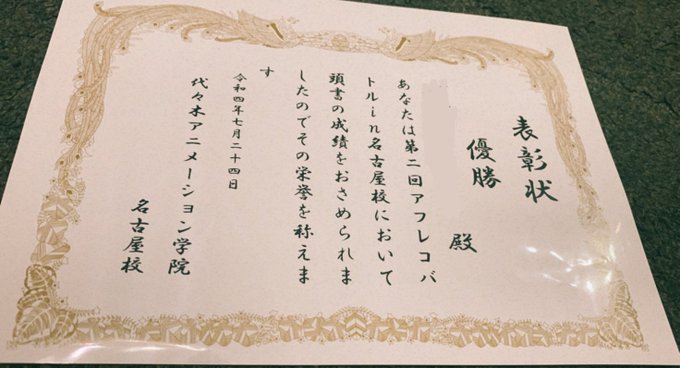 表彰状
優勝
殿
あなたは第二回アフレコバ
トルin名古屋校において
頭書の成績をおさめられま
したのでその栄誉を称えま
す
令和四年七月二十四日
代々木アニメーション学院
名古屋校